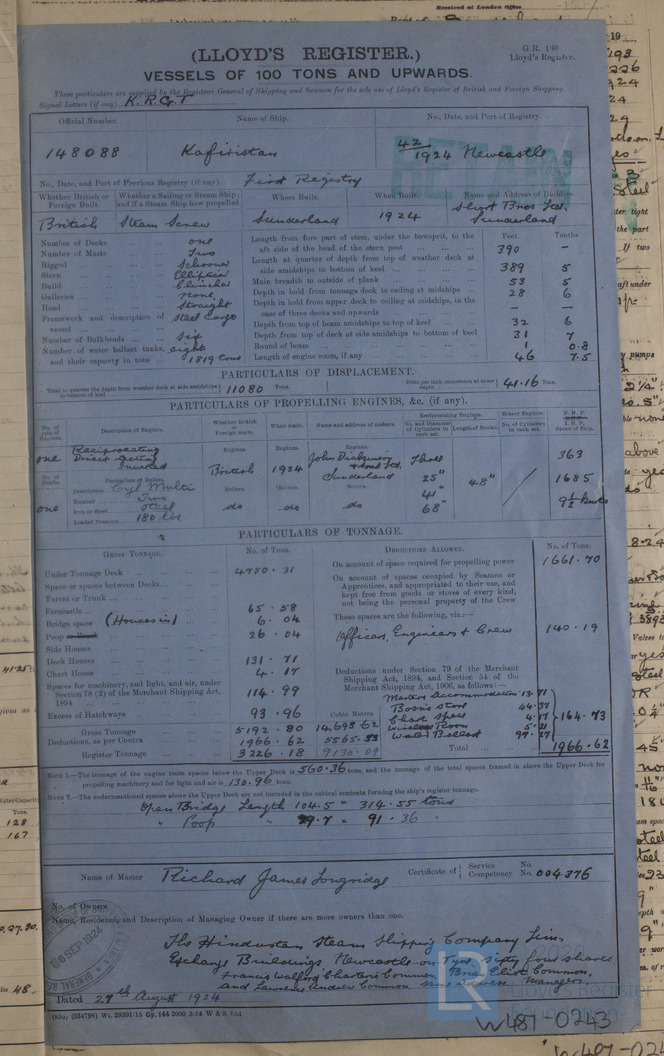 Received at London Office
(LLOYD'S REGISTER.)
G.R. 130
Lloyd's Register.
VESSELS OF 100 TONS AND UPWARDS.
These particulars are supplied by the Registrar General of Shipping and Seamen for the sole use of Lloyd's Register of British and Foreign Shipping.
Signal Letters (if any) K.R.G.T
Official Number. Name of Ship. No., Date, and Port of Registry.
148088 Kafiristan 42/1924 Newcastle
RETAIN
No., Date, and Port of Previous Registry (if any). First Registry
Whether British or Foreign Built. Whether a Sailing or Steam Ship; and if a Steam Ship how propelled Where Built. When Built. Name and Address of Builders
British Steam Screw Sunderland 1924 Short Bros Ltd. Sunderland
Feet Tenths
Number of Decks one
Number of Masts Two
Rigged Schooner
Stern Elliptical
Build Clincher
Galleries none
Head Straight
Framework and description of vessel Steel Cargo
Number of Bulkheads Six
Number of water ballast tanks, eight
and their capacity in tons 1819 tons
Length from fore part of stem, under the bowsprit, to the aft side of the head of the stern post 390 —
Length at quarter of depth from top of weather deck at side amidships to bottom of keel 389 5
Main breadth to outside of plank 53 5
Depth in hold from tonnage deck to ceiling at midships 28 6
Depth in hold from upper deck to ceiling at midships, in the case of three decks and upwards — —
Depth from top of beam amidships to top of keel 32 6
Depth from top of deck at side amidships to bottom of keel 31 7
Round of beam 1 0.8
Length of engine room, if any 46 7.5
PARTICULARS OF DISPLACEMENT.
Total to quarter the depth from weather deck at side amidships to bottom of keel 11080 Tons. Ditto per inch immersion at same depth 41.16 Tons.
PARTICULARS OF PROPELLING ENGINES, &c. (if any).
No. of sets of Engines. Description of Engines. Whether British or Foreign made. When made. Name and address of makers. Reciprocating Engines. Rotary Engines. N.H.P.
No. and Diameter of Cylinders in each set. Length of Stroke. No. of Cylinders in each set. I.H.P. Speed of Ship.
one Reciprocating Direct Acting Inverted Engines. British Engines. 1924 Engines. John Dickinson & Sons Ltd. Sunderland Three 25" 41" 68" 48" 363
1685
9½ knots
No. of Shafts Particulars of Boilers. Boilers. Boilers. Boilers.
one Description Cyl Multi do do do
Number Two
Iron or Steel Steel
Loaded Pressure 180 lbs
PARTICULARS OF TONNAGE.
GROSS TONNAGE. No. of Tons. DEDUCTIONS ALLOWED. No. of Tons.
Under Tonnage Deck 4750.31
Space or spaces between Decks
Turret or Trunk
Forecastle 65.58
Bridge space (Houses in) 6.04
Poop 26.04
Side Houses
Deck Houses 131.71
Chart House 4.17
Spaces for machinery, and light, and air, under Section 78 (2) of the Merchant Shipping Act, 1894 114.99
Excess of Hatchways 93.96 Cubic Metres
Gross Tonnage 5192.80 14,695.62
Deductions, as per Contra 1966.62 5565.53
Register Tonnage 3226.18 9130.09
On account of space required for propelling power 1661.70
On account of spaces occupied by Seamen or Apprentices, and appropriated to their use, and kept free from goods or stores of every kind, not being the personal property of the Crew
These spaces are the following, viz.:—
Officers, Engineers & Crew 140.19
Deductions under Section 79 of the Merchant Shipping Act, 1894, and Section 54 of the Merchant Shipping Act, 1906, as follows:—
Masters Accommodation 13.71
Bosn's store 44.37
Chart space 4.17
Wireless Room 5.21
Water Ballast 97.27
164.73
Total 1966.62
NOTE 1.—The tonnage of the engine room spaces below the Upper Deck is 560.36 tons, and the tonnage of the total spaces framed in above the Upper Deck for propelling machinery and for light and air is 130.96 tons.
NOTE 2.—The undermentioned spaces above the Upper Deck are not included in the cubical contents forming the ship's register tonnage.
Open Bridge Length 104.5 = 314.55 tons
" Poop " 29.7 = 91.36 "
Name of Master Richard James Longridge Certificate of Service No. Competency No. 004376
No. of Owners
Name, Residence, and Description of Managing Owner if there are more owners than one.
The Hindustan Steam Shipping Company Lim.
Exchange Buildings Newcastle on Tyne Sixty four shares
Francis Walford Charteris Common, Brian Eliot Common,
and Lawrence Andrew Common same address Managers
Dated 27th August 1924
(85o) (224798) Wt. 29391/15 Gp. 144 2000 3-24 W & S Ltd.
08 SEP 1924
LR
Lloyd's Register
W487-0243